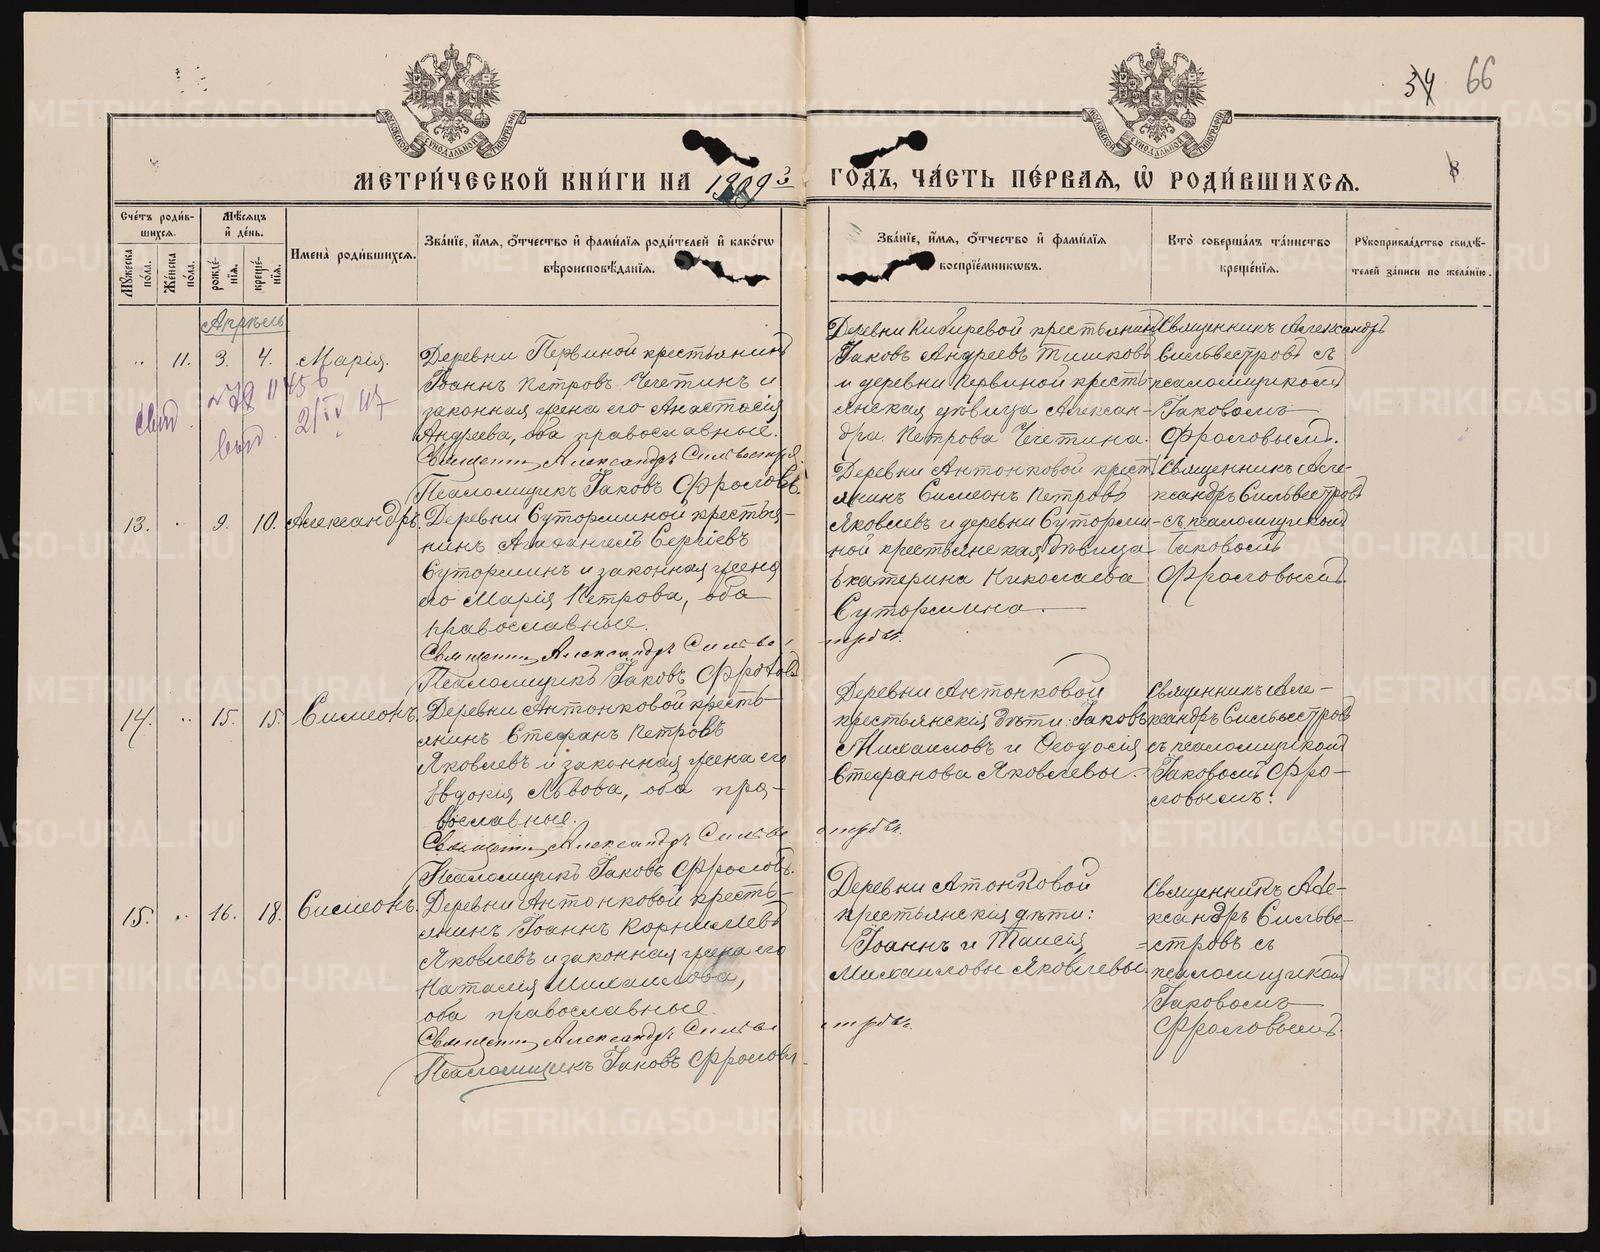 34 66
МЕТРИ́ЧЕСКОЙ КНИ́ГИ НА 1909 ГО́ДЪ, ЧА́СТЬ ПЕ́РВАЯ, Ѡ҆ РОДИ́ВШИХСЯ.
Сче́тъ роди́в-
шихся.
Мꙋ́жеска по́ла.
Же́нска по́ла.
Мѣ́сяцъ
и҆ де́нь.
рожде́-
нїя.
креще́-
нїя.
Имена̀ роди́вшихся.
Зва́нїе, и҆́мя, ѻ҆́тчество и҆ фами́лїя роди́телей и҆ како́гѡ
вѣроисповѣ́данїя.
Зва́нїе, и҆́мя, ѻ҆́тчество и҆ фами́лїя
воспрїе́мникѡвъ.
Кто̀ соверша́лъ та́инство
креще́нїя.
Рꙋкоприкла́дство свидѣ́-
телей за́писи по жела́нїю.
Апрѣль
„ 11. 3. 4. Марія.
Деревни Первиной крестьянинъ
Іоаннъ Петровъ Чечетинъ и
законная жена его Анастасія
Андреева, оба православные.
Священни Александръ Сильвестров.
Псаломщикъ Іаковъ Фроловъ.
Деревни Кибиревой крестьянинъ
Іаковъ Андреевъ Тишковъ
и деревни Первиной кресть-
янская дѣвица Алексан-
дра Петрова Чечетина.
Священникъ Александръ
Сильвестровъ съ
псаломщикомъ
Іаковомъ
Фроловымъ.
свид 2/IV 47
13. „ 9. 10. Александръ.
Деревни Суторминой крестья-
нинъ Агафангелъ Сергіевъ
Суторминъ и законная жена
его Марія Петрова, оба
православные.
Священни Александръ Сильве
стровъ.
Псаломщикъ Іаковъ Фроловъ
Деревни Антонковой крест
янинъ Симеонъ Петровъ
Яковлевъ и деревни Сутормин-
ной крестьянская дѣвица
Екатерина Николаева
Сутормина.
Священникъ Але-
ксандръ Сильвестровъ
съ псаломщикомъ
Іаковомъ
Фроловымъ.
14. „ 15. 15. Симеонъ.
Деревни Антонковой кресть-
янинъ Стефанъ Петровъ
Яковлевъ и законная жена его
Евдокія Львова, оба пра-
вославные.
Священни Александръ Сильве
стровъ.
Псаломщикъ Іаковъ Фроловъ.
Деревни Антонковой
крестьянскія дѣти: Іаковъ
Михаиловъ и Ѳеодосія
Стефанова Яковлевы.
Священникъ Але-
ксандръ Сильвестровъ
съ псаломщикомъ
Іаковомъ Фро-
ловымъ.
15. „ 16. 18. Симеонъ.
Деревни Антонковой кресть-
янинъ Іоаннъ Корниліевъ
Яковлевъ и законная жена его
Наталія Михаилова,
оба православные.
Священни Александръ Сильве
стровъ.
Псаломщикъ Іаковъ Фроловъ
Деревни Атонковой
крестьянскія дѣти:
Іоаннъ и Таисія
Михаиловы Яковлевы.
Священникъ Але-
ксандръ Сильве-
стровъ съ
псаломщикомъ
Іаковомъ
Фроловымъ.
METRIKI.GASO-URAL.RU